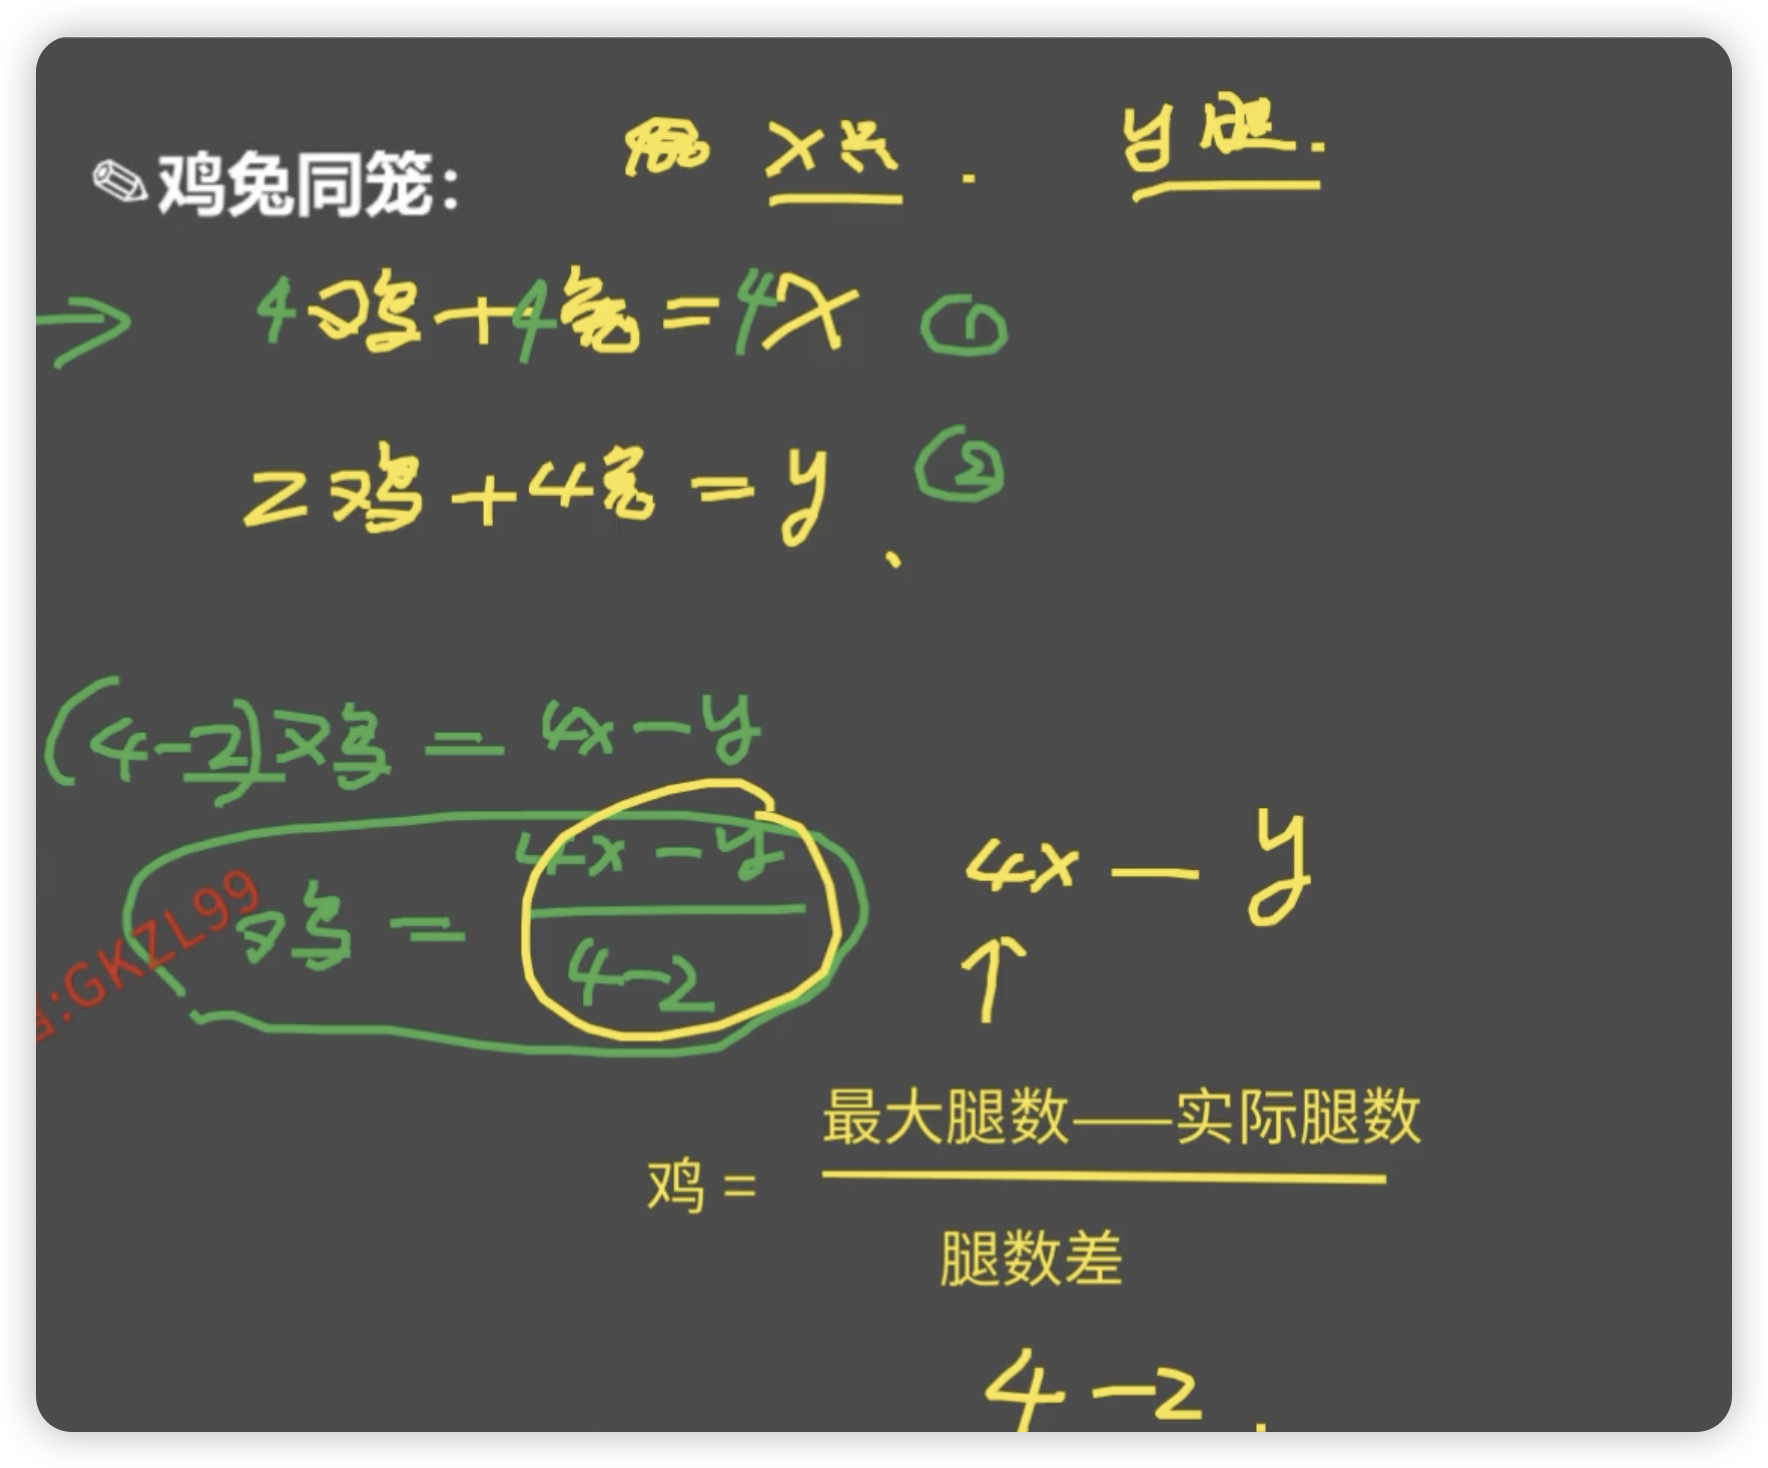 鸡兔同笼： x头. y腿.
4鸡+4兔=4x ①
2鸡+4兔=y ②
(4-2)鸡=4x-y
4x-y
鸡=
4-2
4x-y
:GKZL99
最大腿数——实际腿数
鸡=
腿数差
4-2